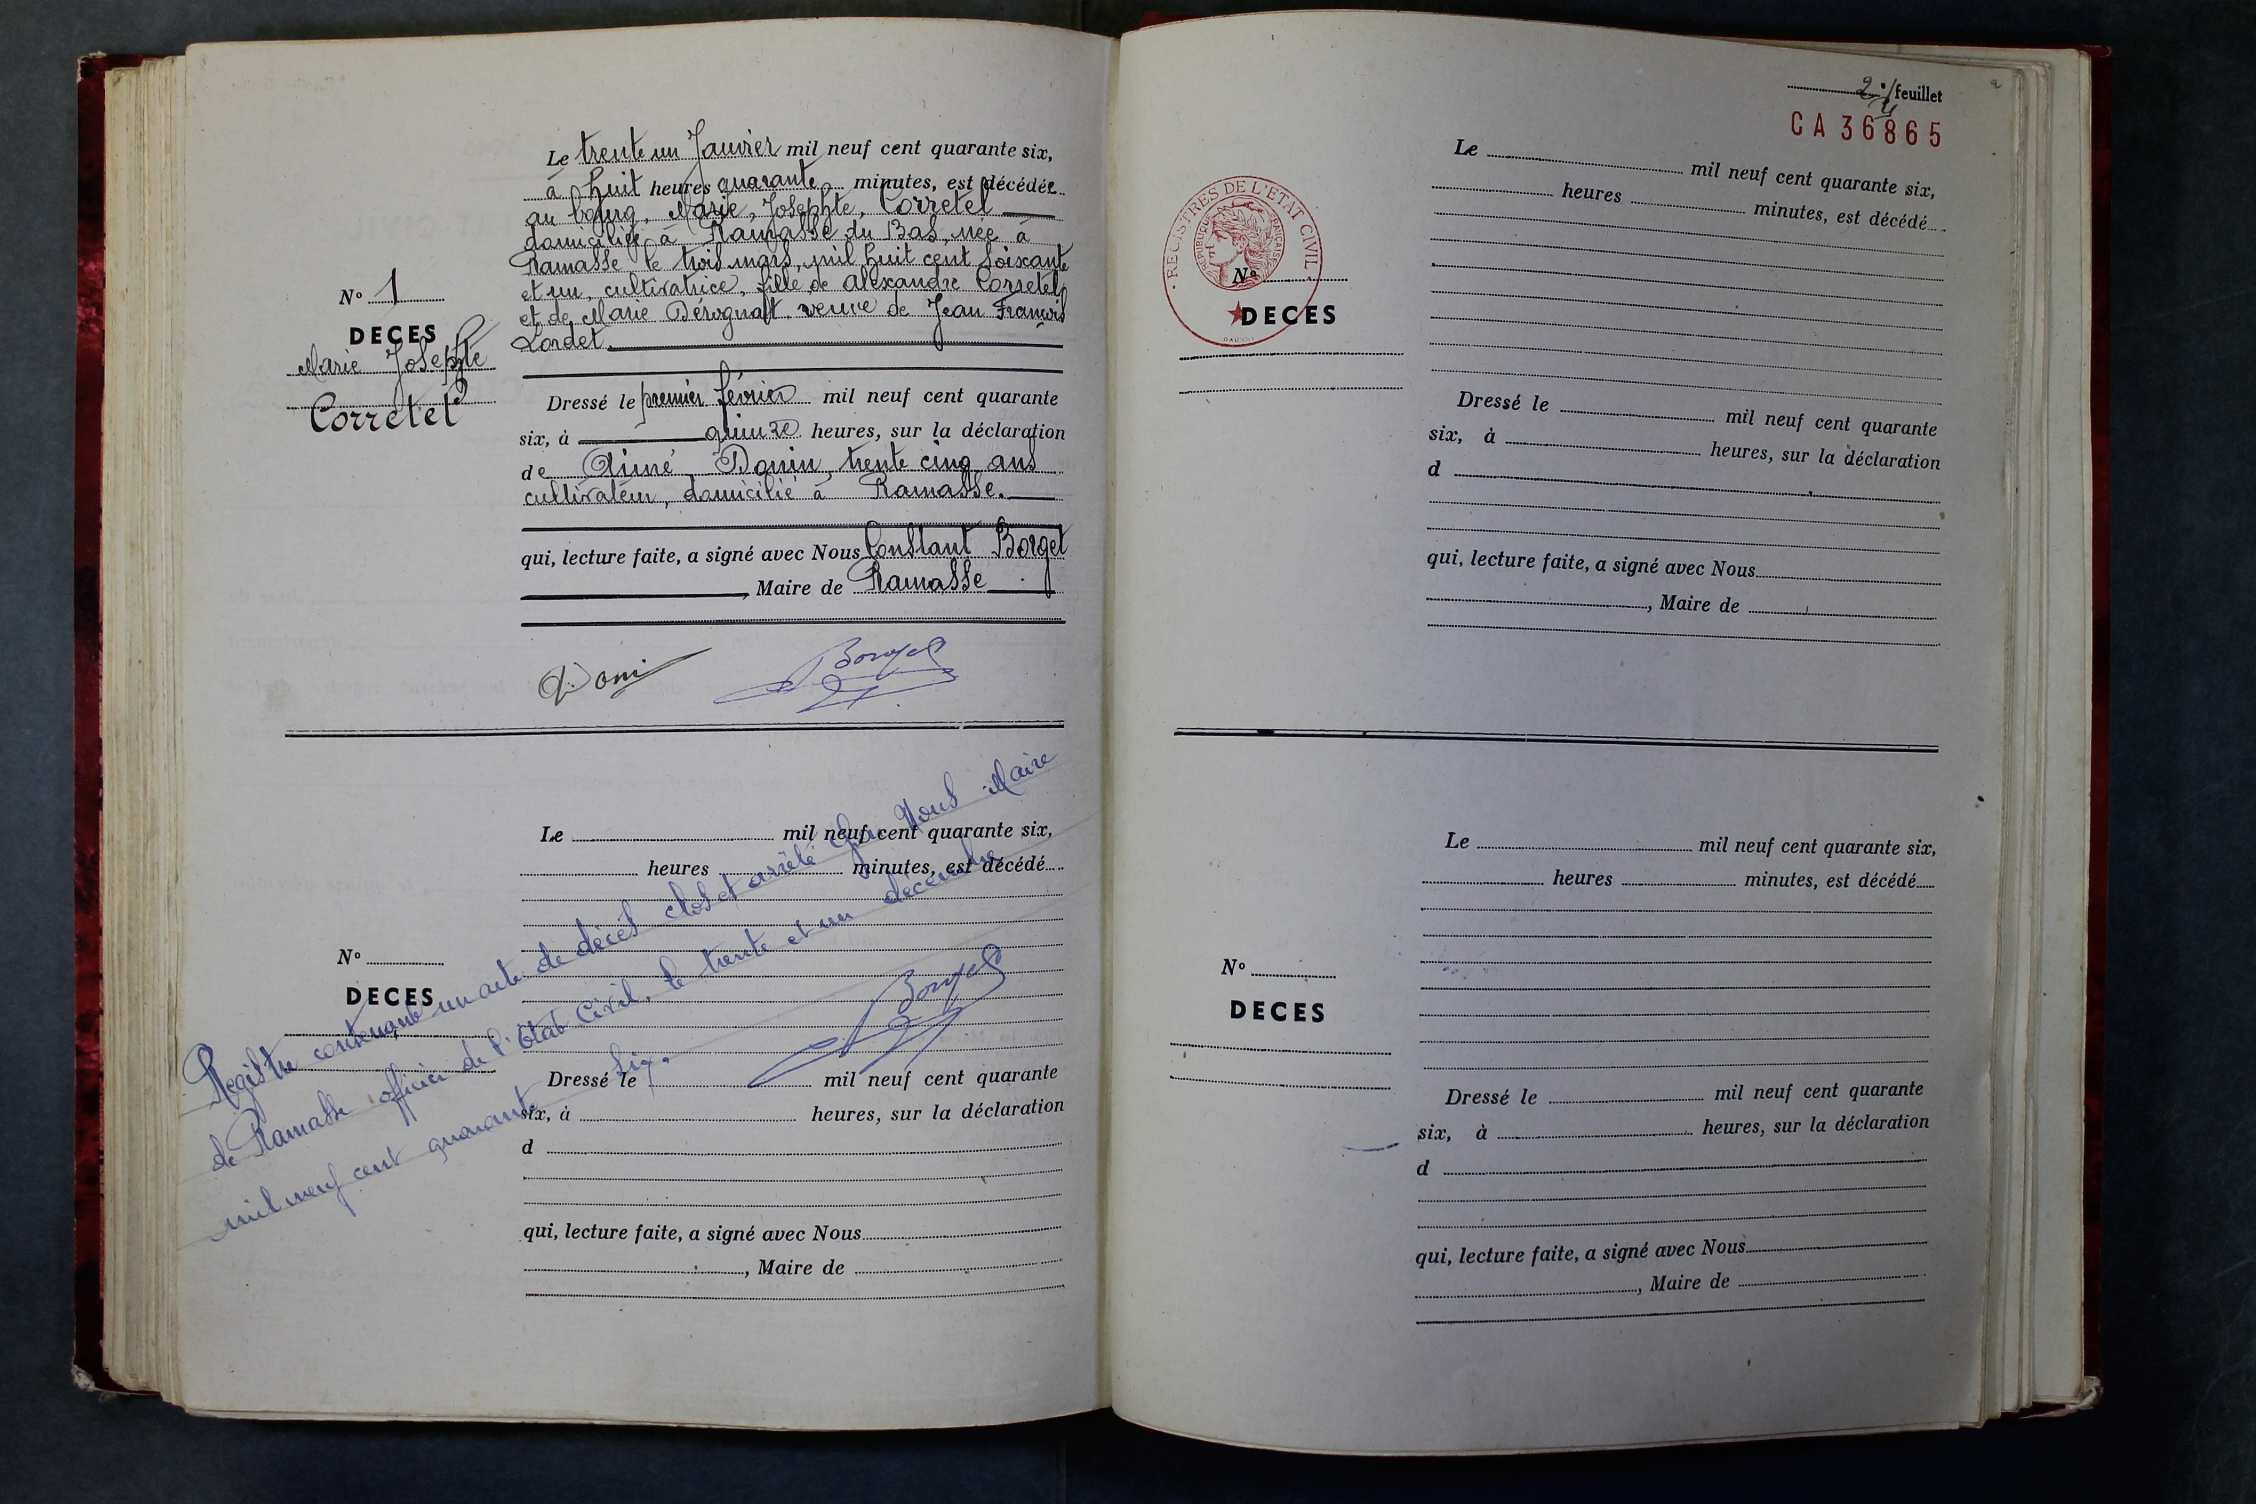 Le trente un Janvier mil neuf cent quarante six,
à huit heures quarante minutes, est décédée
au bourg, Marie, Josephte, Corretel
domiciliée à Ramasse du Bas, née à
Ramasse le trois mars, mil huit cent soixante
et un, cultivatrice, fille de Alexandre Corretel,
et de Marie veuve de Jean François
N° 1
DECES
Marie Josephte
Corretel
Dressé le premier février mil neuf cent quarante
six, à quinze heures, sur la déclaration
de Aimé Donin, trente cinq ans
cultivateur, domicilié à Ramasse.
qui, lecture faite, a signé avec Nous Constant Borget
, Maire de Ramasse
Borget
Le mil neuf cent quarante six,
heures minutes, est décédé
N°
DECES
Dressé le mil neuf cent quarante
six, à heures, sur la déclaration
d
qui, lecture faite, a signé avec Nous
, Maire de
Registre contenant un acte de décès clos et arrêté par Nous Maire
de Ramasse officier de l'Etat Civil, le trente et un décembre
mil neuf cent quarante six.
Borget
2 feuillet
CA 36865
Le mil neuf cent quarante six,
heures minutes, est décédé
REGISTRES DE L'ETAT CIVIL
REPUBLIQUE FRANÇAISE
N°
DECES
Dressé le mil neuf cent quarante
six, à heures, sur la déclaration
d
qui, lecture faite, a signé avec Nous
, Maire de
Le mil neuf cent quarante six,
heures minutes, est décédé
N°
DECES
Dressé le mil neuf cent quarante
six, à heures, sur la déclaration
d
qui, lecture faite, a signé avec Nous
, Maire de